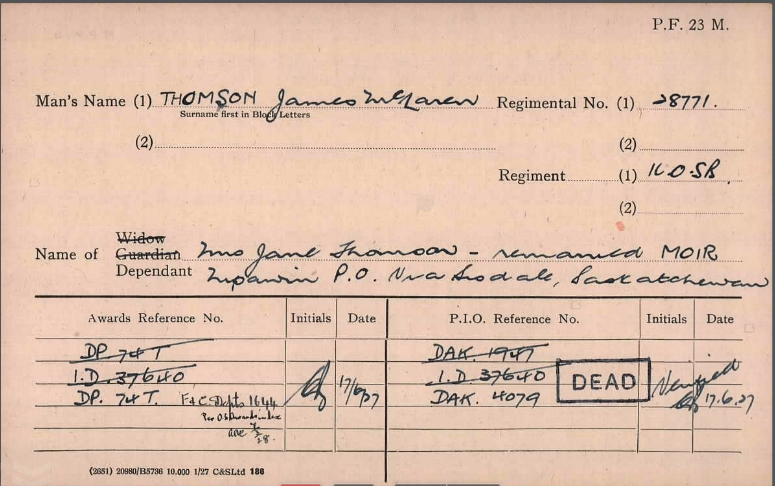 P.F. 23 M.
Man's Name (1) THOMSON James McLaren Regimental No. (1) 28771.
Surname first in Block Letters
(2) (2)
Regment (1) K.O.S.B.
(2)
Widow
Name of Guardian Mrs Jane Thomson - remarried MOIR
Dependant Nipawin P.O. Via Tisdale, Saskatchewan
Awards Reference No. Initials Date P.I.O. Reference No. Initials Date
DP. 74T DAK. 1947
I.D. 37640 17/6/27 I.D 37640 DEAD Verified
DP. 74T. F&C Dept 1644 DAK. 4079 17.6.27
(2651) 20980/B5736 10.000 1/27 C&SLtd 186